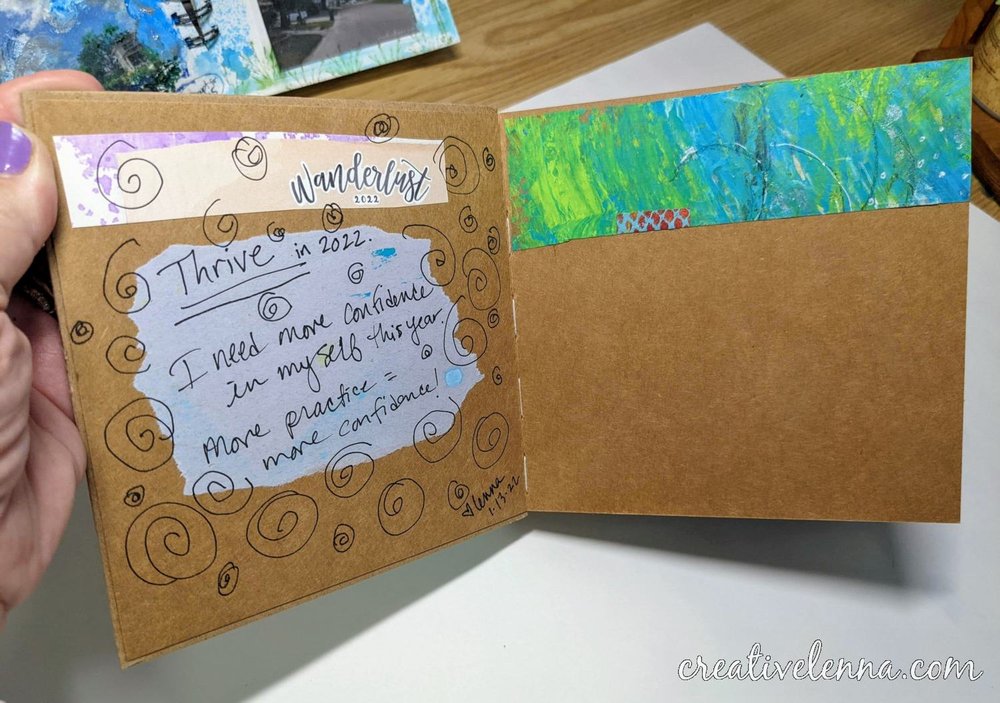 Wanderlust
2022
Thrive in 2022.
I need more confidence
in myself this year.
more practice =
more confidence!
lenna
1-13-22
creativelenna.com